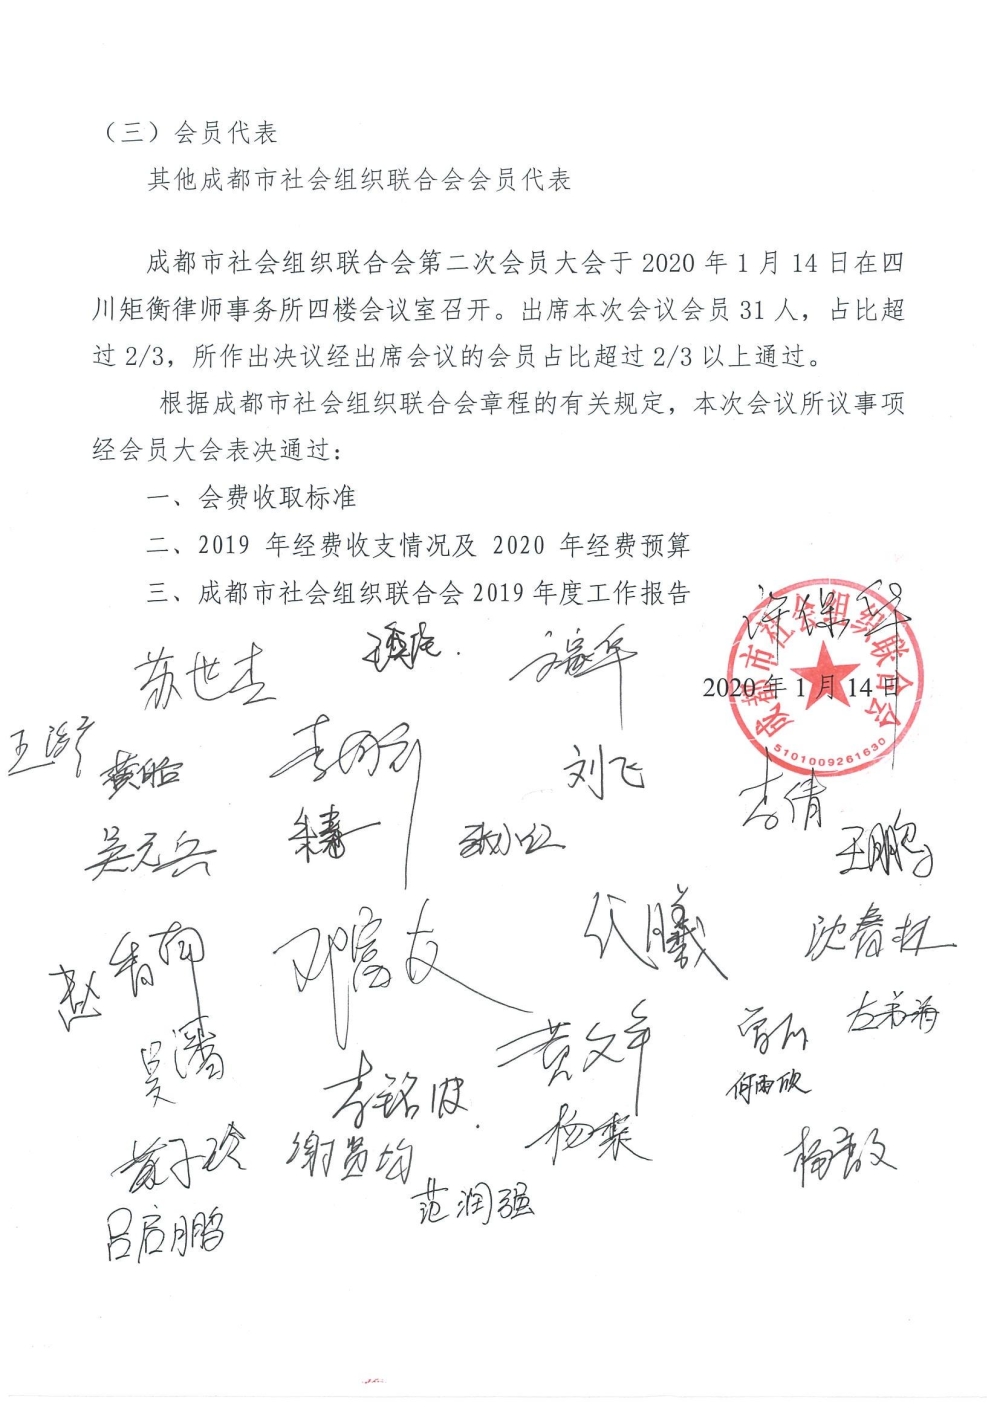 （三）会员代表
其他成都市社会组织联合会会员代表
成都市社会组织联合会第二次会员大会于 2020 年 1 月 14 日在四
川矩衡律师事务所四楼会议室召开。出席本次会议会员 31 人，占比超
过 2/3，所作出决议经出席会议的会员占比超过 2/3 以上通过。
根据成都市社会组织联合会章程的有关规定，本次会议所议事项
经会员大会表决通过：
一、会费收取标准
二、2019 年经费收支情况及 2020 年经费预算
三、成都市社会组织联合会 2019 年度工作报告
成都市社会组织联合会
苏世杰
2020 年 1 月 14 日
5101009261630
刘飞
李倩
吴元兵
王鹏
代曦
沈春林
邓富友
黄文军
李铭波
何雨欣
谢贤均
范润强
吕启鹏